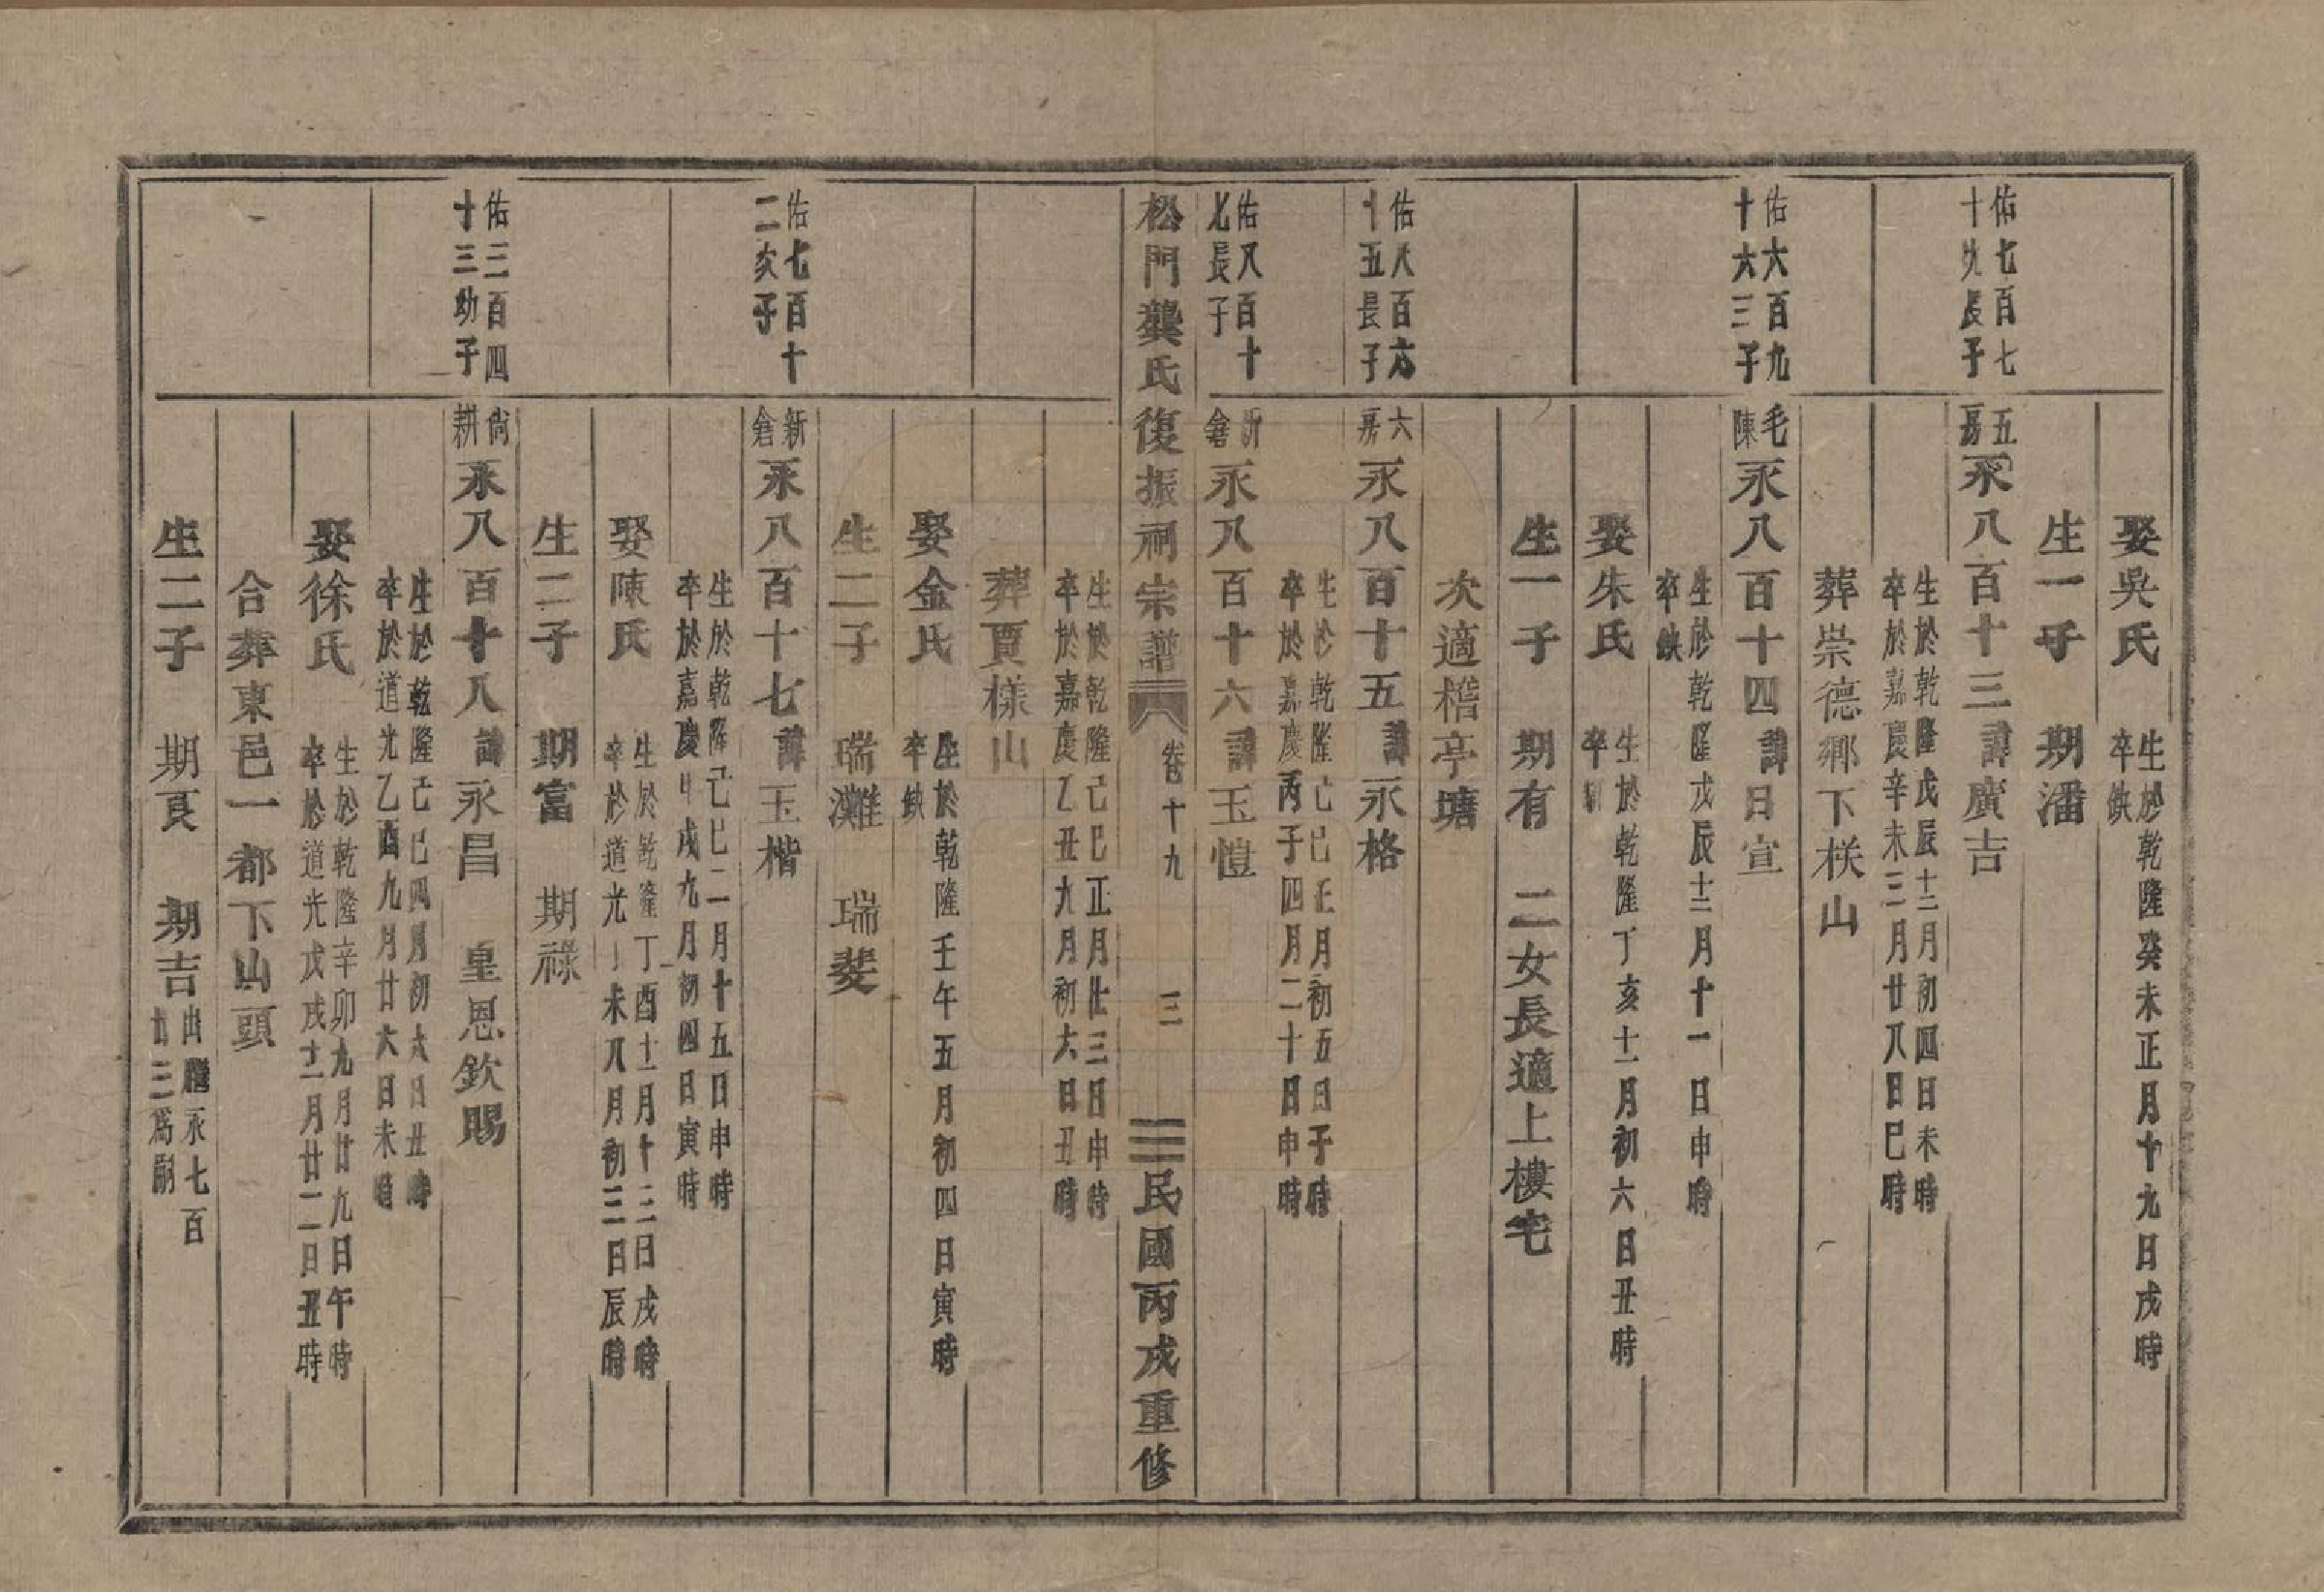 娶吳氏 生於乾隆癸未正月十九日戌時 卒缺
生一子 期潘
佑七百七十九長子 五房 永八百十三 諱廣吉
生於乾隆戊辰十二月初四日未時
卒於嘉慶辛未三月廿八日巳時
葬崇德鄉下栚山
佑六百九十六三子 毛陳 永八百十四 諱日宣
生於乾隆戊辰十二月十一日申時
卒缺
娶朱氏 生於乾隆丁亥十一月初六日丑時 卒
生一子 期有 二女長適上樓宅
次適楷亭塘
佑八百六十五長子 六房 永八百十五 諱永格
生於乾隆己巳正月初五日子時
卒於嘉慶丙子四月二十日申時
佑八百十七長子 新倉 永八百十六 諱玉愷
松門龔氏復振祠宗譜 卷十九 三 民國丙戌重修
生於乾隆己巳正月廿三日申時
卒於嘉慶乙丑九月初六日丑時
葬賈樣山
娶金氏 生於乾隆壬午五月初四日寅時 卒缺
生二子 瑞灘 瑞斐
佑七百十二次子 新倉 永八百十七 諱玉楷
生於乾隆己巳二月十五日申時
卒於嘉慶甲戌九月初四日寅時
娶陳氏 生於乾隆丁酉十一月十三日戌時 卒於道光丁未八月初三日辰時
生二子 期富 期祿
佑三百四十三幼子 尙耕 永八百十八 諱永昌 皇恩欽賜
生於乾隆己巳四月初六日丑時
卒於道光乙酉九月廿六日未時
娶徐氏 生於乾隆辛卯九月廿九日午時 卒於道光戊戌十二月廿二日丑時
合葬東邑一都下山頭
生二子 期良 期吉 出繼永七百廿三爲嗣